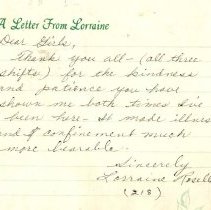 A Letter From Lorraine
Dear Girls,
Thank you all - (all three
shifts) for the kindness
and patience you have
shown me both times I've
been here - It made illness
and confinement much
more bearable.
Sincerely
Lorraine Rosell
(218)